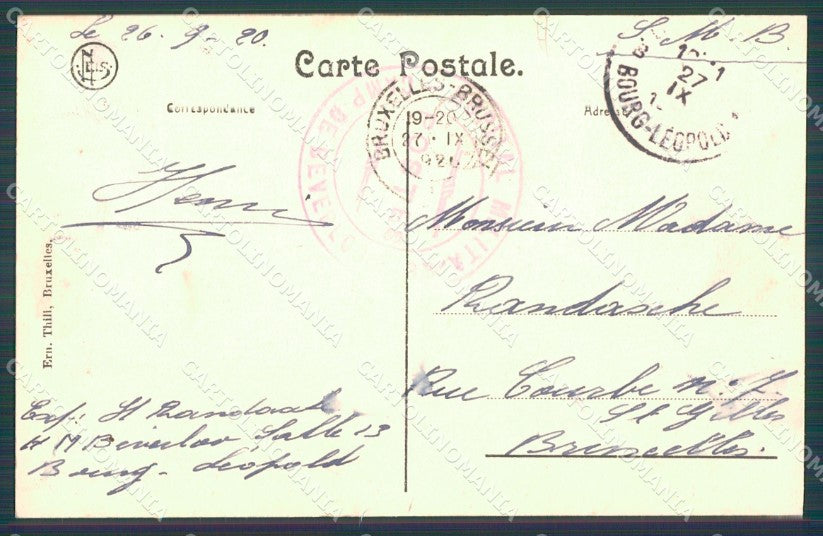 Le 26-9-20.
S. M. B.
NELS
Carte Postale.
Correspondance
Adresse
BRUXELLES-BRUSSEL
19-20
27 · IX
1920
BOURG-LÉOPOLD
27
IX
HOPITAL MILITAIRE
CAMP DE BEVERLOO
Henri
Monsieur Madame
Randaxhe
Rue Courbe n° 7
St Gilles
Bruxelles.
Exp: H Randaxhe
H M Beverloo Salle 13
Bourg-Léopold
Ern. Thill, Bruxelles.
CARTOLINOMANIA